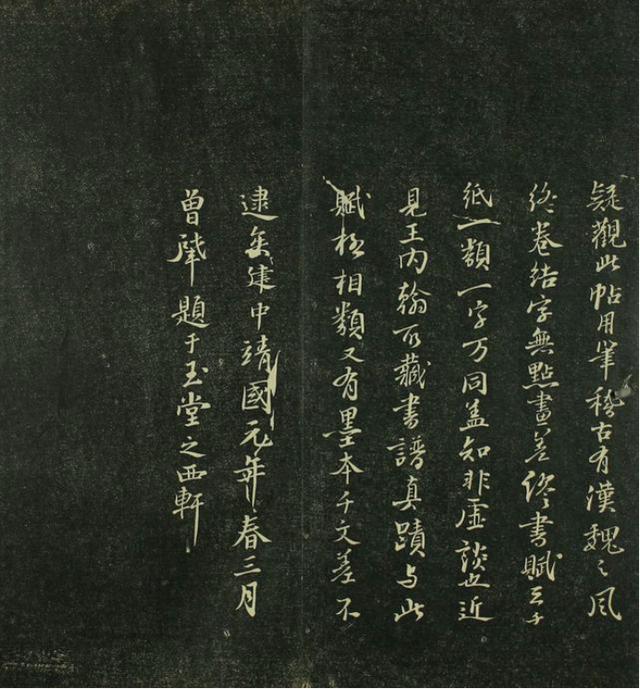 疑觀此帖用筆稽古有漢魏之風
終卷結字無點畫差繆書賦云千
紙一類一字万同盖知非虛談也近
見王内翰所藏書譜真蹟与此
賦極相類又有墨本千文差不
逮矣建中靖國元年春三月
曾肇題于玉堂之西軒